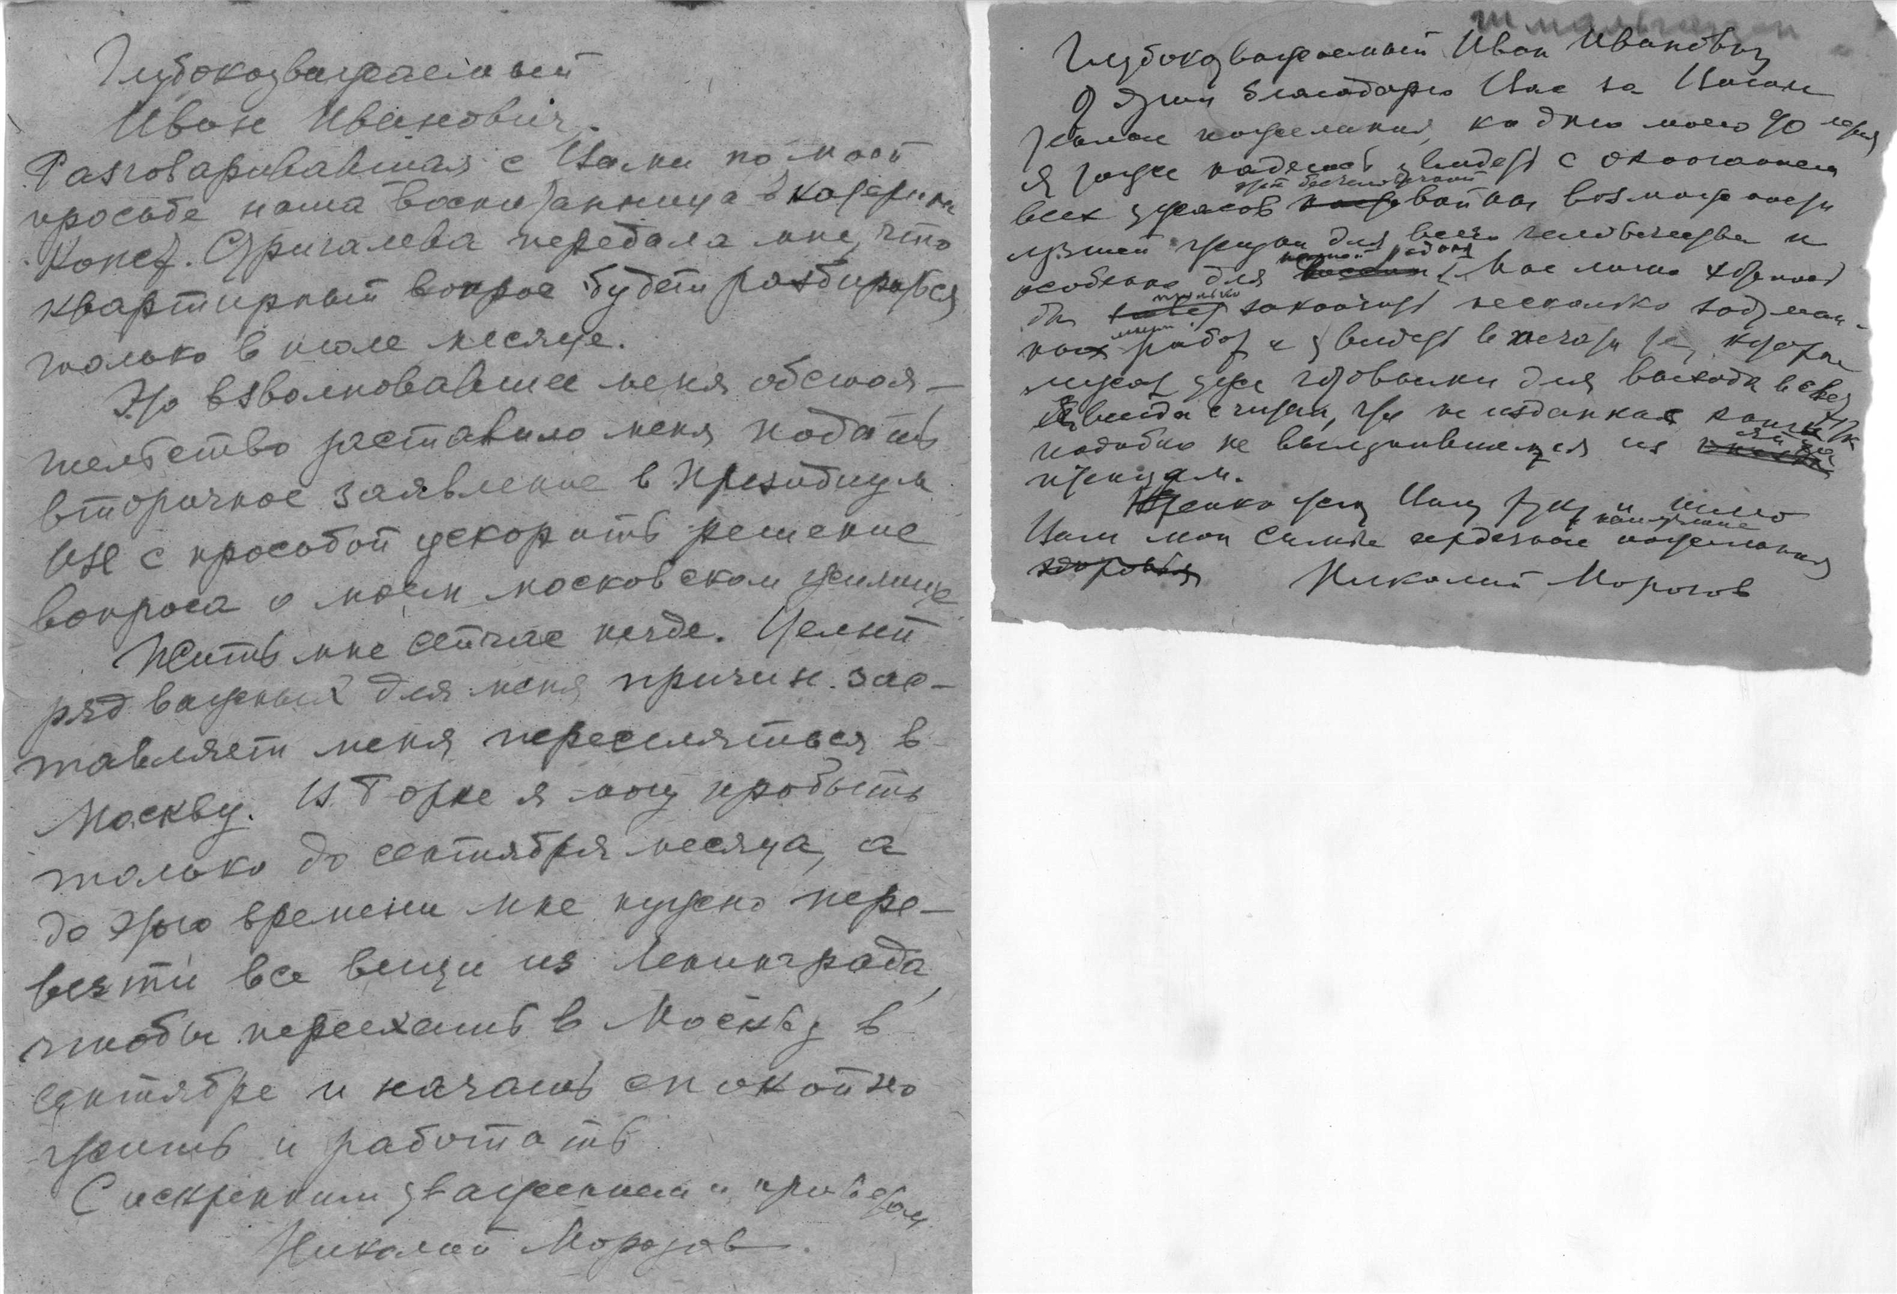 Глубокоуважаемый
Иван Иванович.
Разговаривавшая с Вами по моей
просьбе наша воспитанница Екатерина
Конст. Стригалева передала мне, что
квартирный вопрос будет разбираться
только в июле месяце.
Это взволновавшее меня обстоя-
тельство заставило меня подать
вторичное заявление в Президиум
с просьбой ускорить решение
вопроса о моем московском жилище
Жить мне сейчас негде. Целый
ряд важных для меня причин зас-
тавляет меня переселяться в
Москву. В Борке я могу пробыть
только до сентября месяца, а
до этого времени мне нужно пере-
везти все вещи из Ленинграда,
чтобы переехать в Москву в
сентябре и начать спокойно
жить и работать
С искренним уважением и приветом
Николай Морозов.
Глубокоуважаемый Иван Иванович
благодарю Вас за Ваши
пожелания ко дню моего 90 летия
Я тоже надеюсь увидеть с окончанием
этой бесчеловечной
всех ужасов войны возможности
лучшей жизни для всего человечества и
нашей родины
особенно для Мне лично хотелось
только
бы закончить несколько задуман-
ных работ и увидеть в печати те, которые
лежат уже готовыми для выхода в свет
Я всегда считал, что не изданная книга
подобна не вылупившемуся из яйца
птенцам.
Крепко жму Вашу руку и шлю
и наилучшие
Вам мои самые сердечные пожелания
здоровья
Николай Морозов